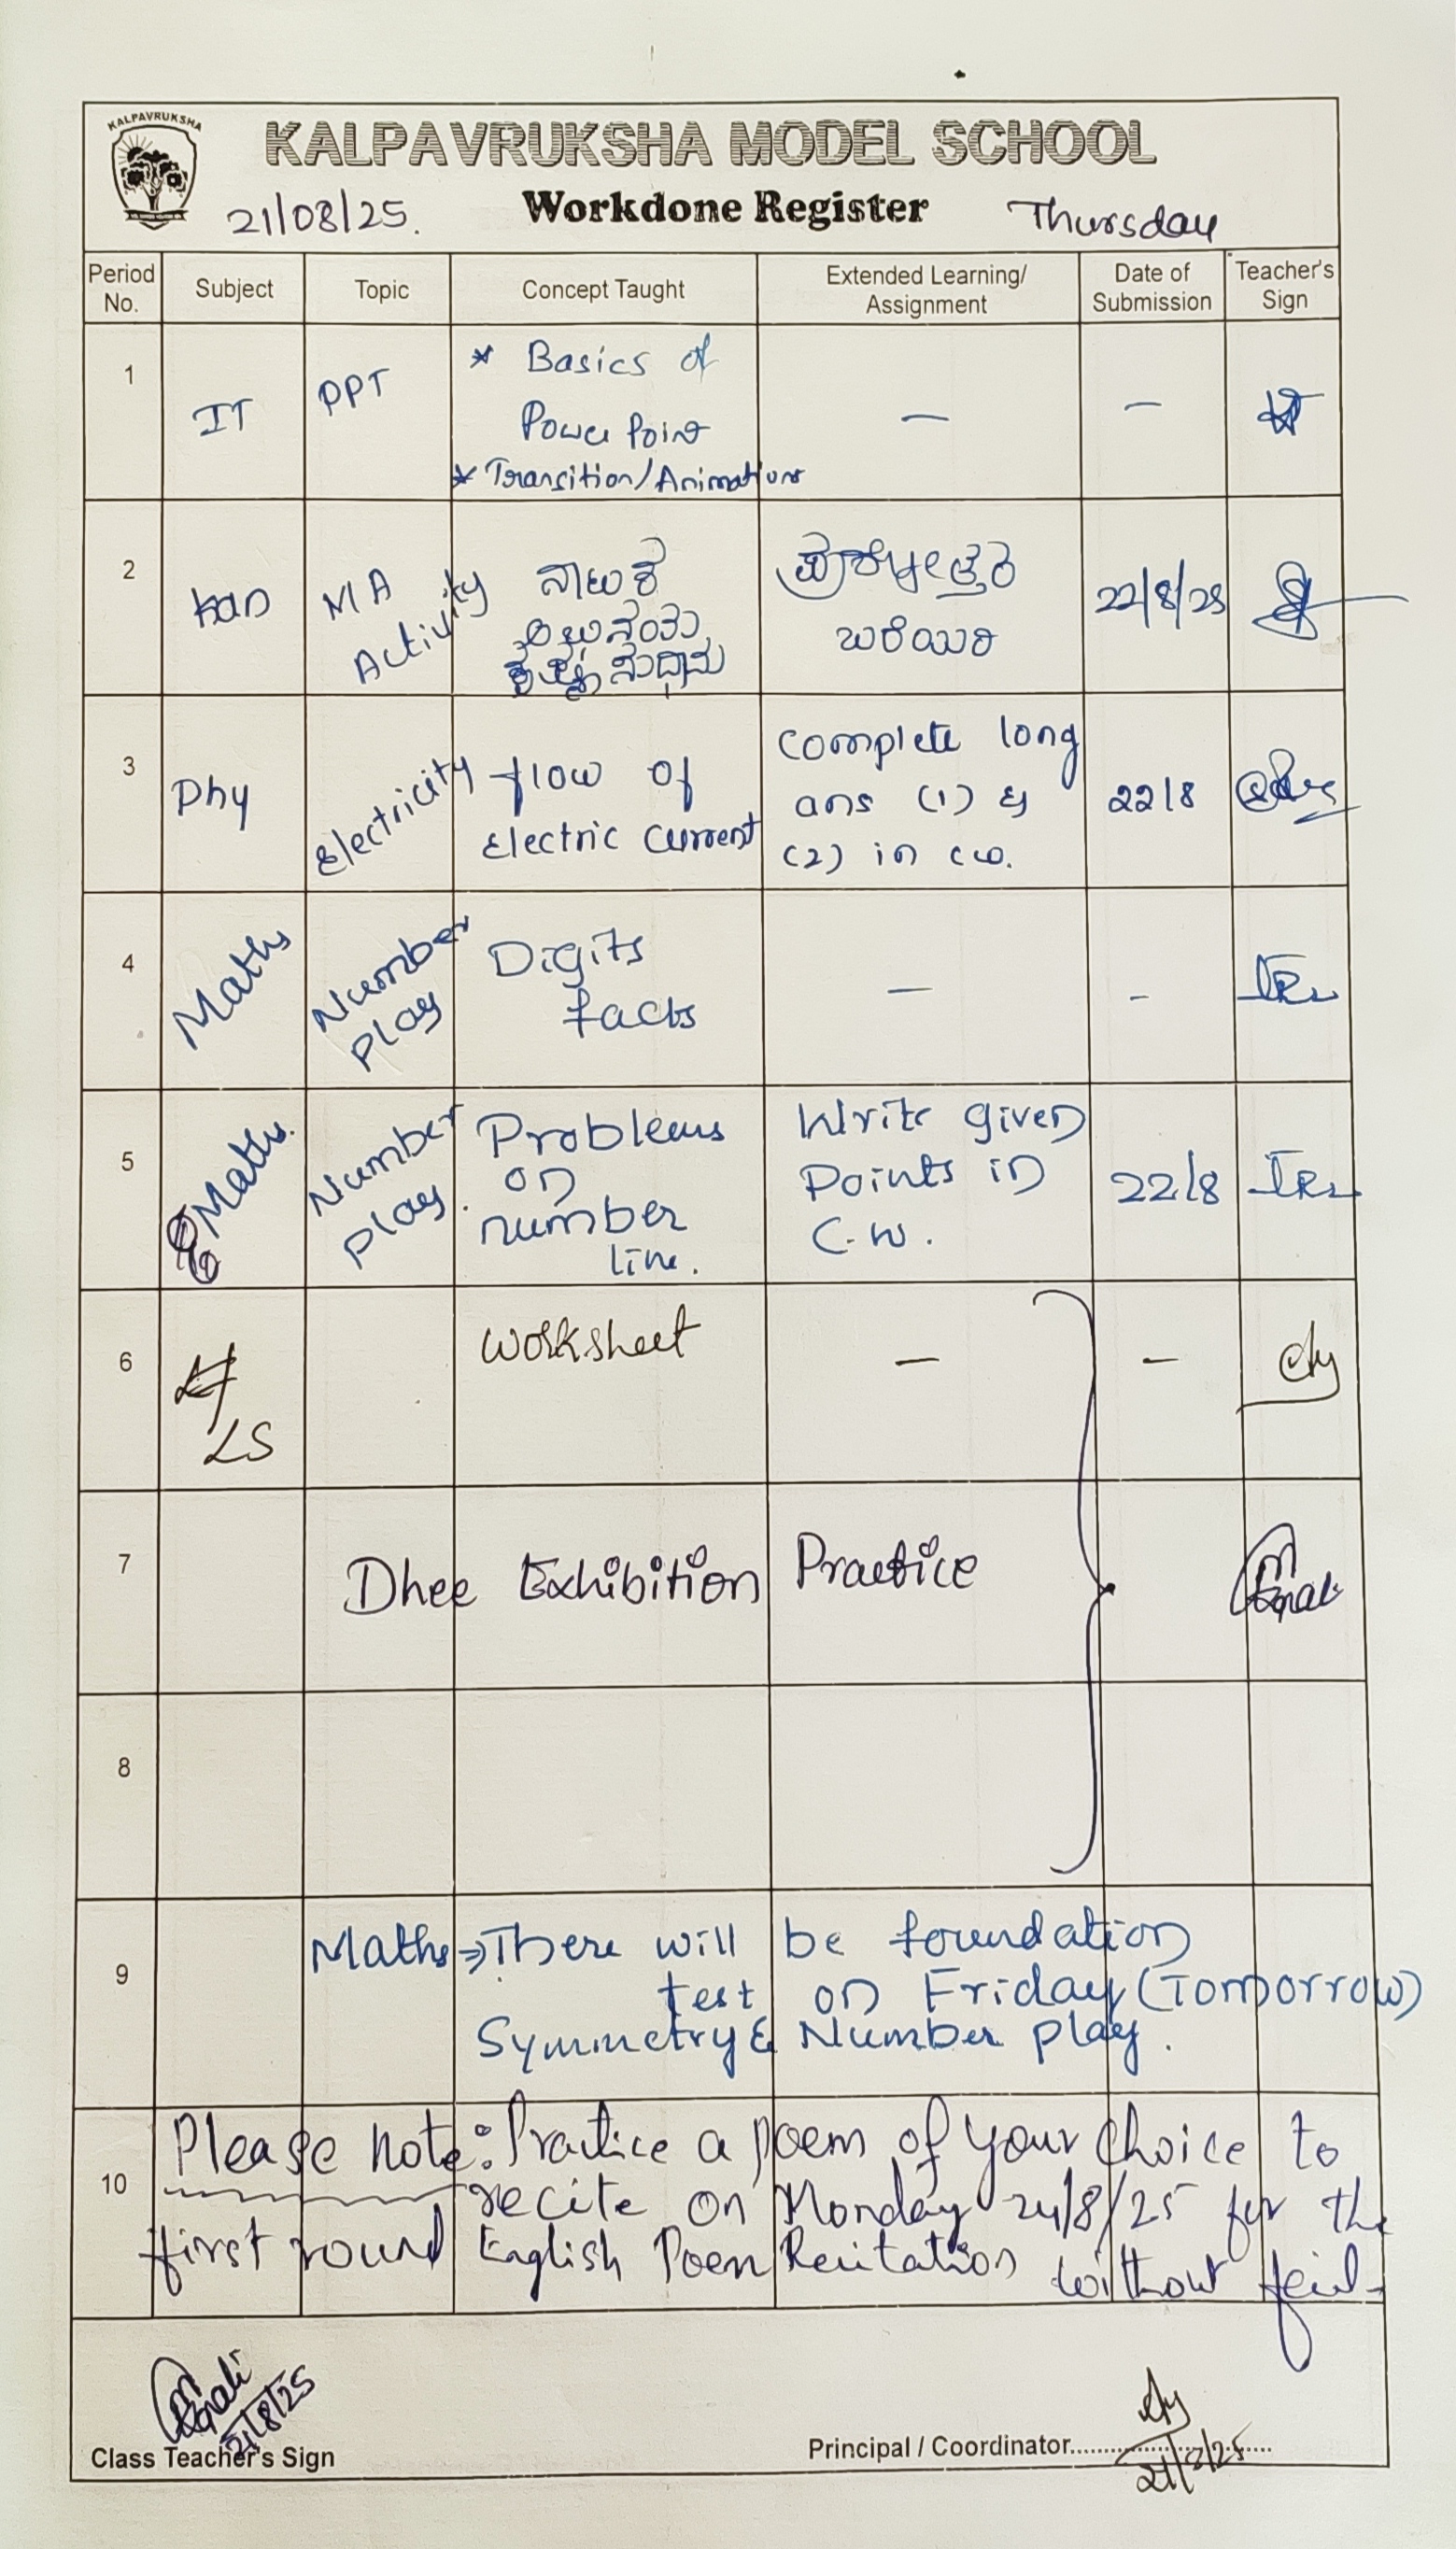 KALPAVRUKSHA
KALPAVRUKSHA MODEL SCHOOL
21/08/25. Workdone Register Thursday
Period No. Subject Topic Concept Taught Extended Learning/ Assignment Date of Submission Teacher's Sign
1 IT PPT * Basics of
Power Point — —
* Transition/Animations
2 Kan MA Activity ನಾಟಕ
ಬರೆಯಿರಿ 22/8/25
3 Phy Electricity flow of
Electric Current
Complete long
ans (1) &
(2) in cw. 22/8
4 Maths Number play Digits
facts — -
5 Maths. Number play. Problems
on
number
line.
Write given
Points in
C.W. 22/8
6 LS Worksheet — —
7 Dhee Exhibition Practice
8
9 Maths ⇒ There will be foundation
test on Friday (Tomorrow)
Symmetry & Number play.
10 Please note: Practice a poem of your choice to
recite on Monday 24/8/25 for the
first round English Poem Recitation without fail.
21/8/25
Class Teacher's Sign Principal / Coordinator